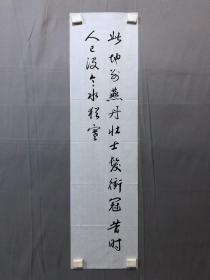 此地别燕丹壮士发冲冠昔时
人已没今水犹寒